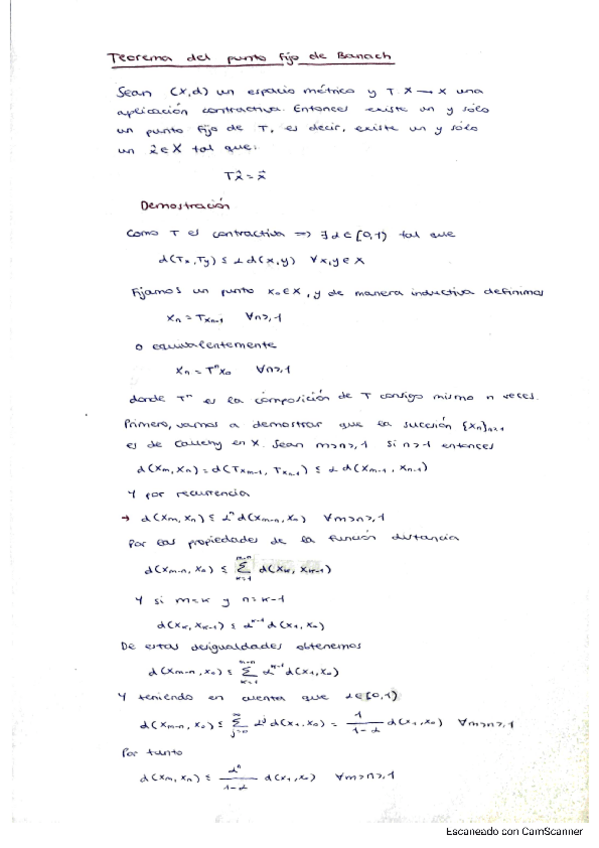 Teorema del punto fijo de Banach
Sean (X,d) un espacio métrico y T X → X una
aplicación contractiva. Entonces existe un y sólo
un punto fijo de T, es decir, existe un y sólo
un x̂ ∈ X tal que:
Tx̂ = x̂
Demostración
Como T es contractiva ⇒ ∃ α ∈ [0,1) tal que
d(Tx, Ty) ≤ α d(x,y) ∀x,y ∈ X
Fijamos un punto x₀ ∈ X, y de manera inductiva definimos
xₙ = Txₙ₋₁ ∀n ≥ 1
o equivalentemente
xₙ = Tⁿx₀ ∀n ≥ 1
donde Tⁿ es la composición de T consigo mismo n veces.
Primero, vamos a demostrar que la sucesión {xₙ}ₙ≥₁
es de Cauchy en X. Sean m>n≥1 Si n>1 entonces
d(xₘ, xₙ) = d(Txₘ₋₁, Txₙ₋₁) ≤ α d(xₘ₋₁, xₙ₋₁)
Y por recurrencia
→ d(xₘ, xₙ) ≤ αⁿ d(xₘ₋ₙ, x₀) ∀m>n≥1
Por las propiedades de la función distancia
d(xₘ₋ₙ, x₀) ≤ Σ_{k=1}^{m-n} d(xₖ, xₖ₋₁)
Y si m=k y n=k-1
d(xₖ, xₖ₋₁) ≤ α^{k-1} d(x₁, x₀)
De estas desigualdades obtenemos
d(xₘ₋ₙ, x₀) ≤ Σ_{k=1}^{m-n} α^{k-1} d(x₁, x₀)
Y teniendo en cuenta que α ∈ [0,1)
d(xₘ₋ₙ, x₀) ≤ Σ_{j=0}^{∞} α^j d(x₁, x₀) = 1/(1-α) d(x₁, x₀) ∀m>n≥1
Por tanto
d(xₘ, xₙ) ≤ αⁿ/(1-α) d(x₁, x₀) ∀m>n≥1
Escaneado con CamScanner